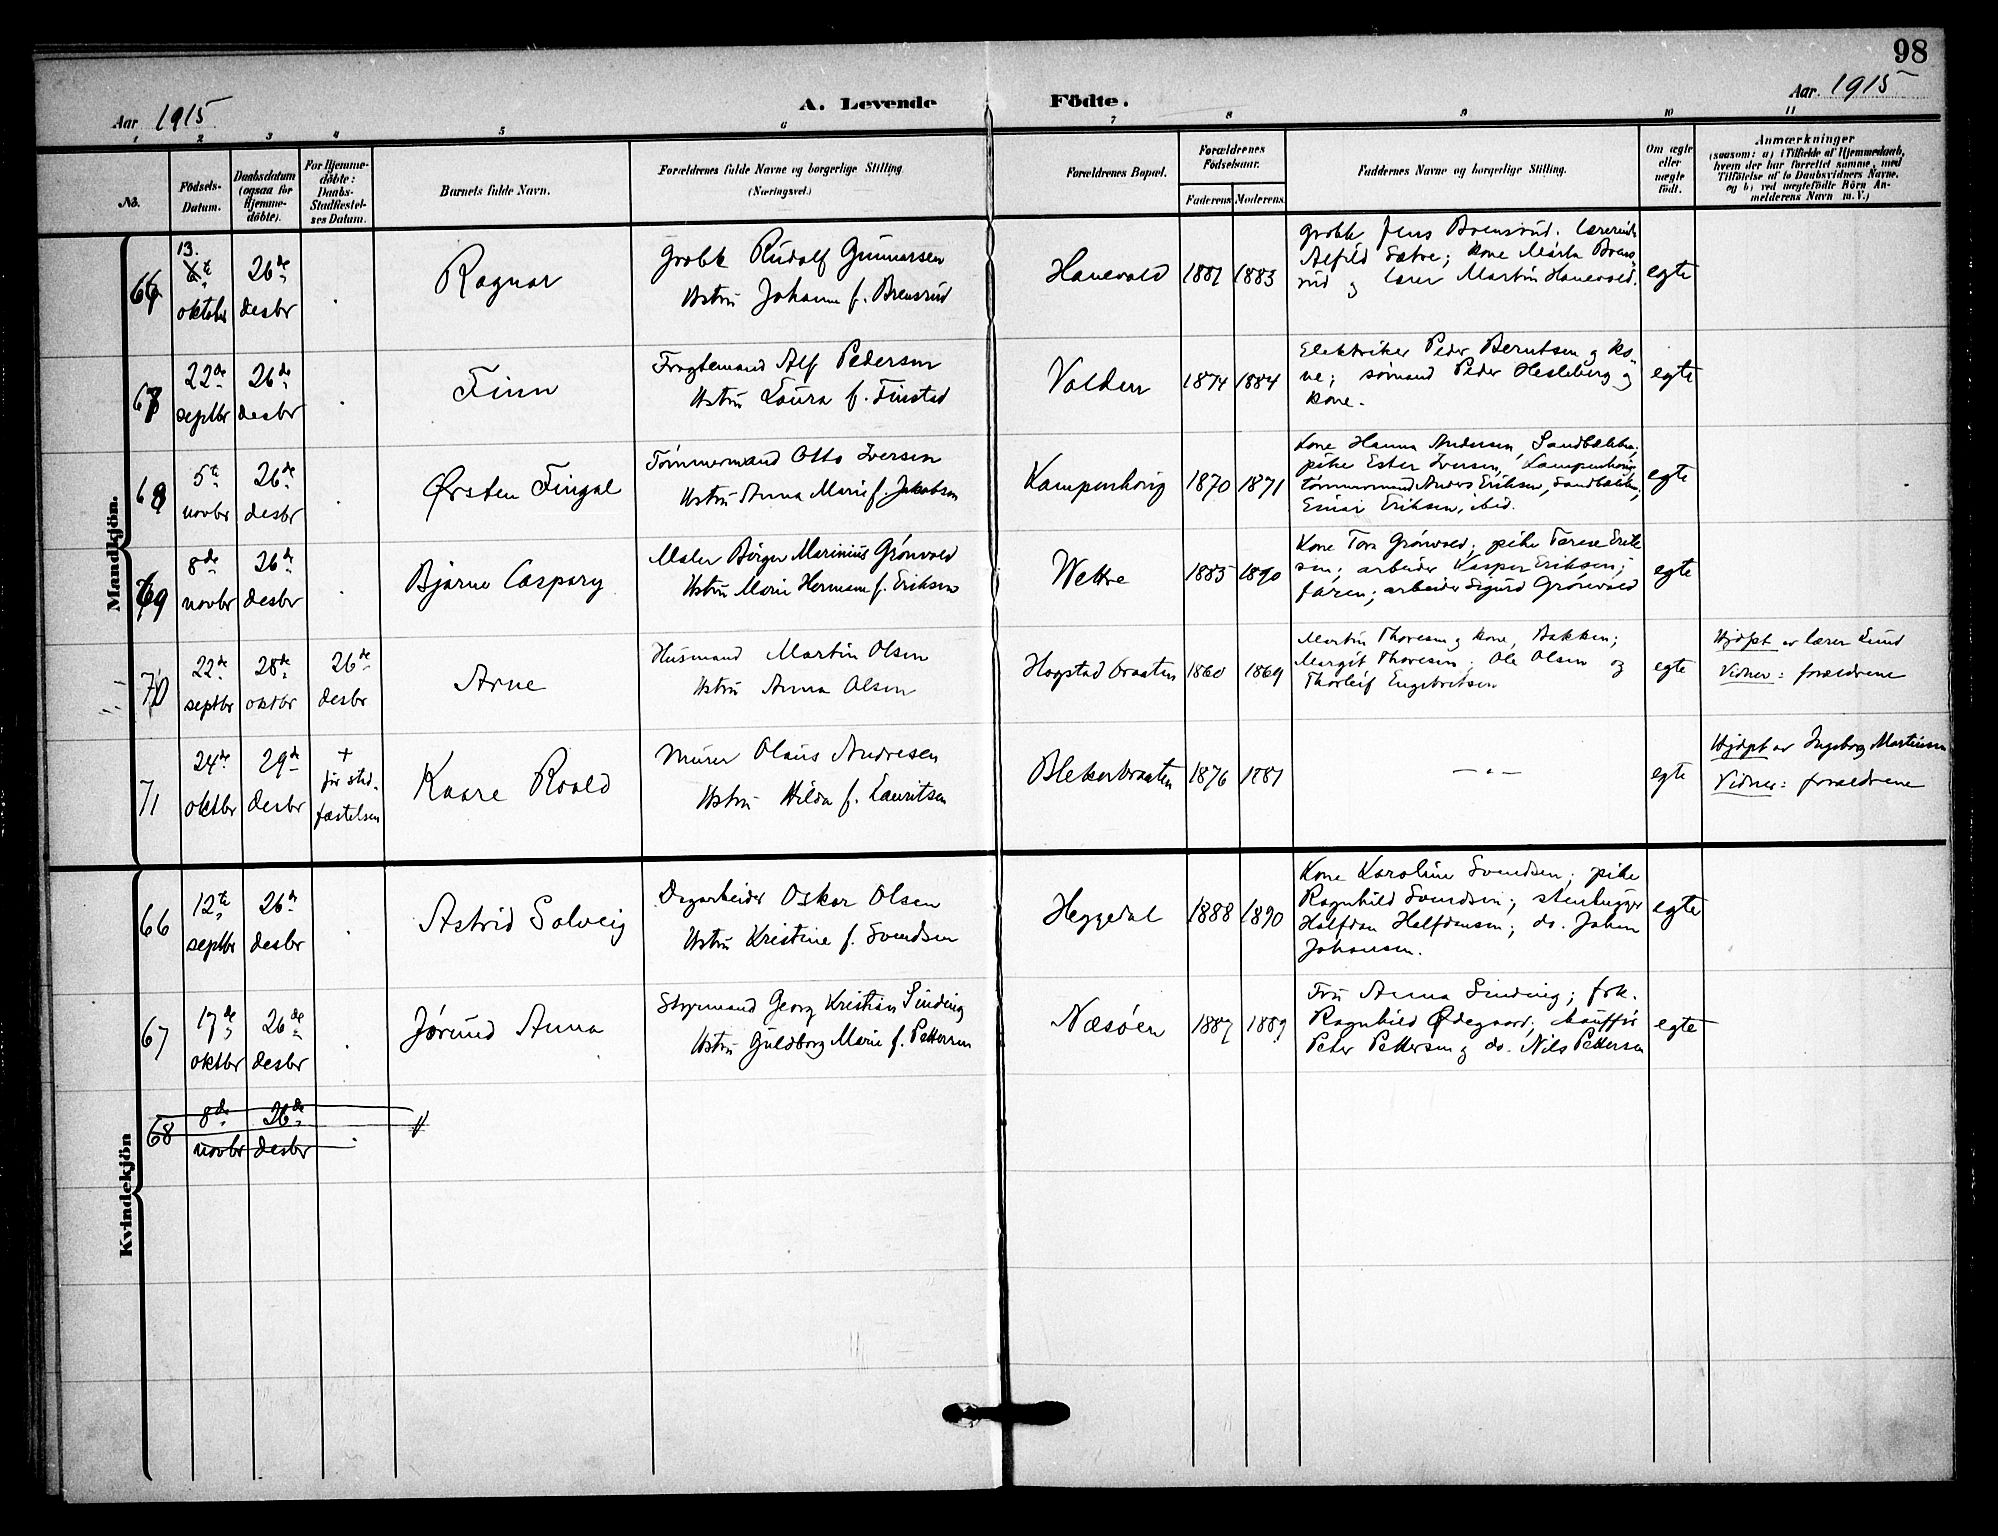 98
Aar 1915
A. Levende Födte.
Aar. 1915
1 2 3 4 5 6 7 8 9 10 11
No.
Födsels-
Datum.
Daabsdatum
(ogsaa for
Hjemme-
döbte).
For Hjemme-
döbte:
Daabs-
Stadfæstel-
ses Datum.
Barnets fulde Navn.
Forældrenes fulde Navne og borgerlige Stilling
(Næringsvei.)
Forældrenes Bopæl.
Forældrenes
Födselsaar.
Faderens Moderens
Faddernes Navne og borgerlige Stilling.
Om ægte
eller
uægte
födt.
Anmærkninger
(saasom: a) i Tilfælde af Hjemmedaab,
hvem der har forrettet samme, med
Tilföielse af to Daabsvidners Navne,
og b) ved uægtefödte Börn An-
melderens Navn m. V.)
Mandkjön.
66
13.
oktober
26de
desbr
Ragnar
Grobk Rudolf Gunnarsen
Hstru Johanne f. Brensrud
Hanevold
1881 1883
grobk Jens Brensrud. lærerinde
Alfild Sætre; kone Marta Brens-
rud og lærer Martin Hanevold.
egte
67
22de
septbr
26de
desbr
Finn
Fragtemand Alf Pedersen
Hstru Laura f. Finstad
Valden
1874 1884
Elektriker Peder Berntsen og ko-
ne; sømand Peder Hesleberg og
kone.
egte
68
5te
novbr
26de
desbr
Ørsten Fingal
Tømmermand Otto Iversen
Hstru Anna Marie f. Jakobsen
Kampenhaug
1870 1871
kone Hanna Andersen, Sandbækken;
pike Ester Iversen, Kampenhaug
tømmermand Anders Eriksen, Sandbækken;
Einar Eriksen, ibid.
egte
69
8de
novbr
26de
desbr
Bjarne Caspary
Maler Birger Marinius Grønvold
Hstru Marie Hermane f. Eriksen
Wettre
1885 1890
Kone Tora Grønvold; pike Farese Erik
sen; arbeider Kasper Eriksen;
faren; arbeider Sigurd Grønvold
egte
70
22de
septbr
28de
oktbr
26de
desbr
Arne
Husmand Martin Olsen
Hstru Anna Olsen
Hogstad braaten
1860 1869
Martin Thoresen og kone, Bakken;
Margit Thoresen; Ole Olsen og
Thorleif Engebretsen
egte
Hjdpt av lærer Lund
Vidner: forældrene
71
24de
oktbr
29de
desbr
+
før stad-
fæstelsen
Kaare Roald
Murer Olaus Andresen
Hstru Hilda f. Lauritsen
Blekerbraaten
1876 1881
— " —
egte
Hjdpt av Ingeborg Martinsen
Vidner: forældrene
Kvindekjön
66
12te
septbr
26de
desbr
Astrid Solveig
Dagarbeider Oskar Olsen
Hstru Kristine f. Svendsen
Heggedal
1888 1890
Kone Karoline Svendsen; pike
Ragnhild Svendsen; stenhugger
Halfdan Halfdansen; do. Johan
Johansen.
egte
67
17de
oktbr
26de
desbr
Jørund Anna
Styrmand Georg Kristian Sinding
Hstru Guldborg Marie f. Pettersen
Næsøen
1887 1889
Fru Anna Sinding; frk.
Ragnhild Ødegaard; chauffør
Peter Pettersen og do. Nils Pettersen
egte
68
8de
novbr
26de
desbr